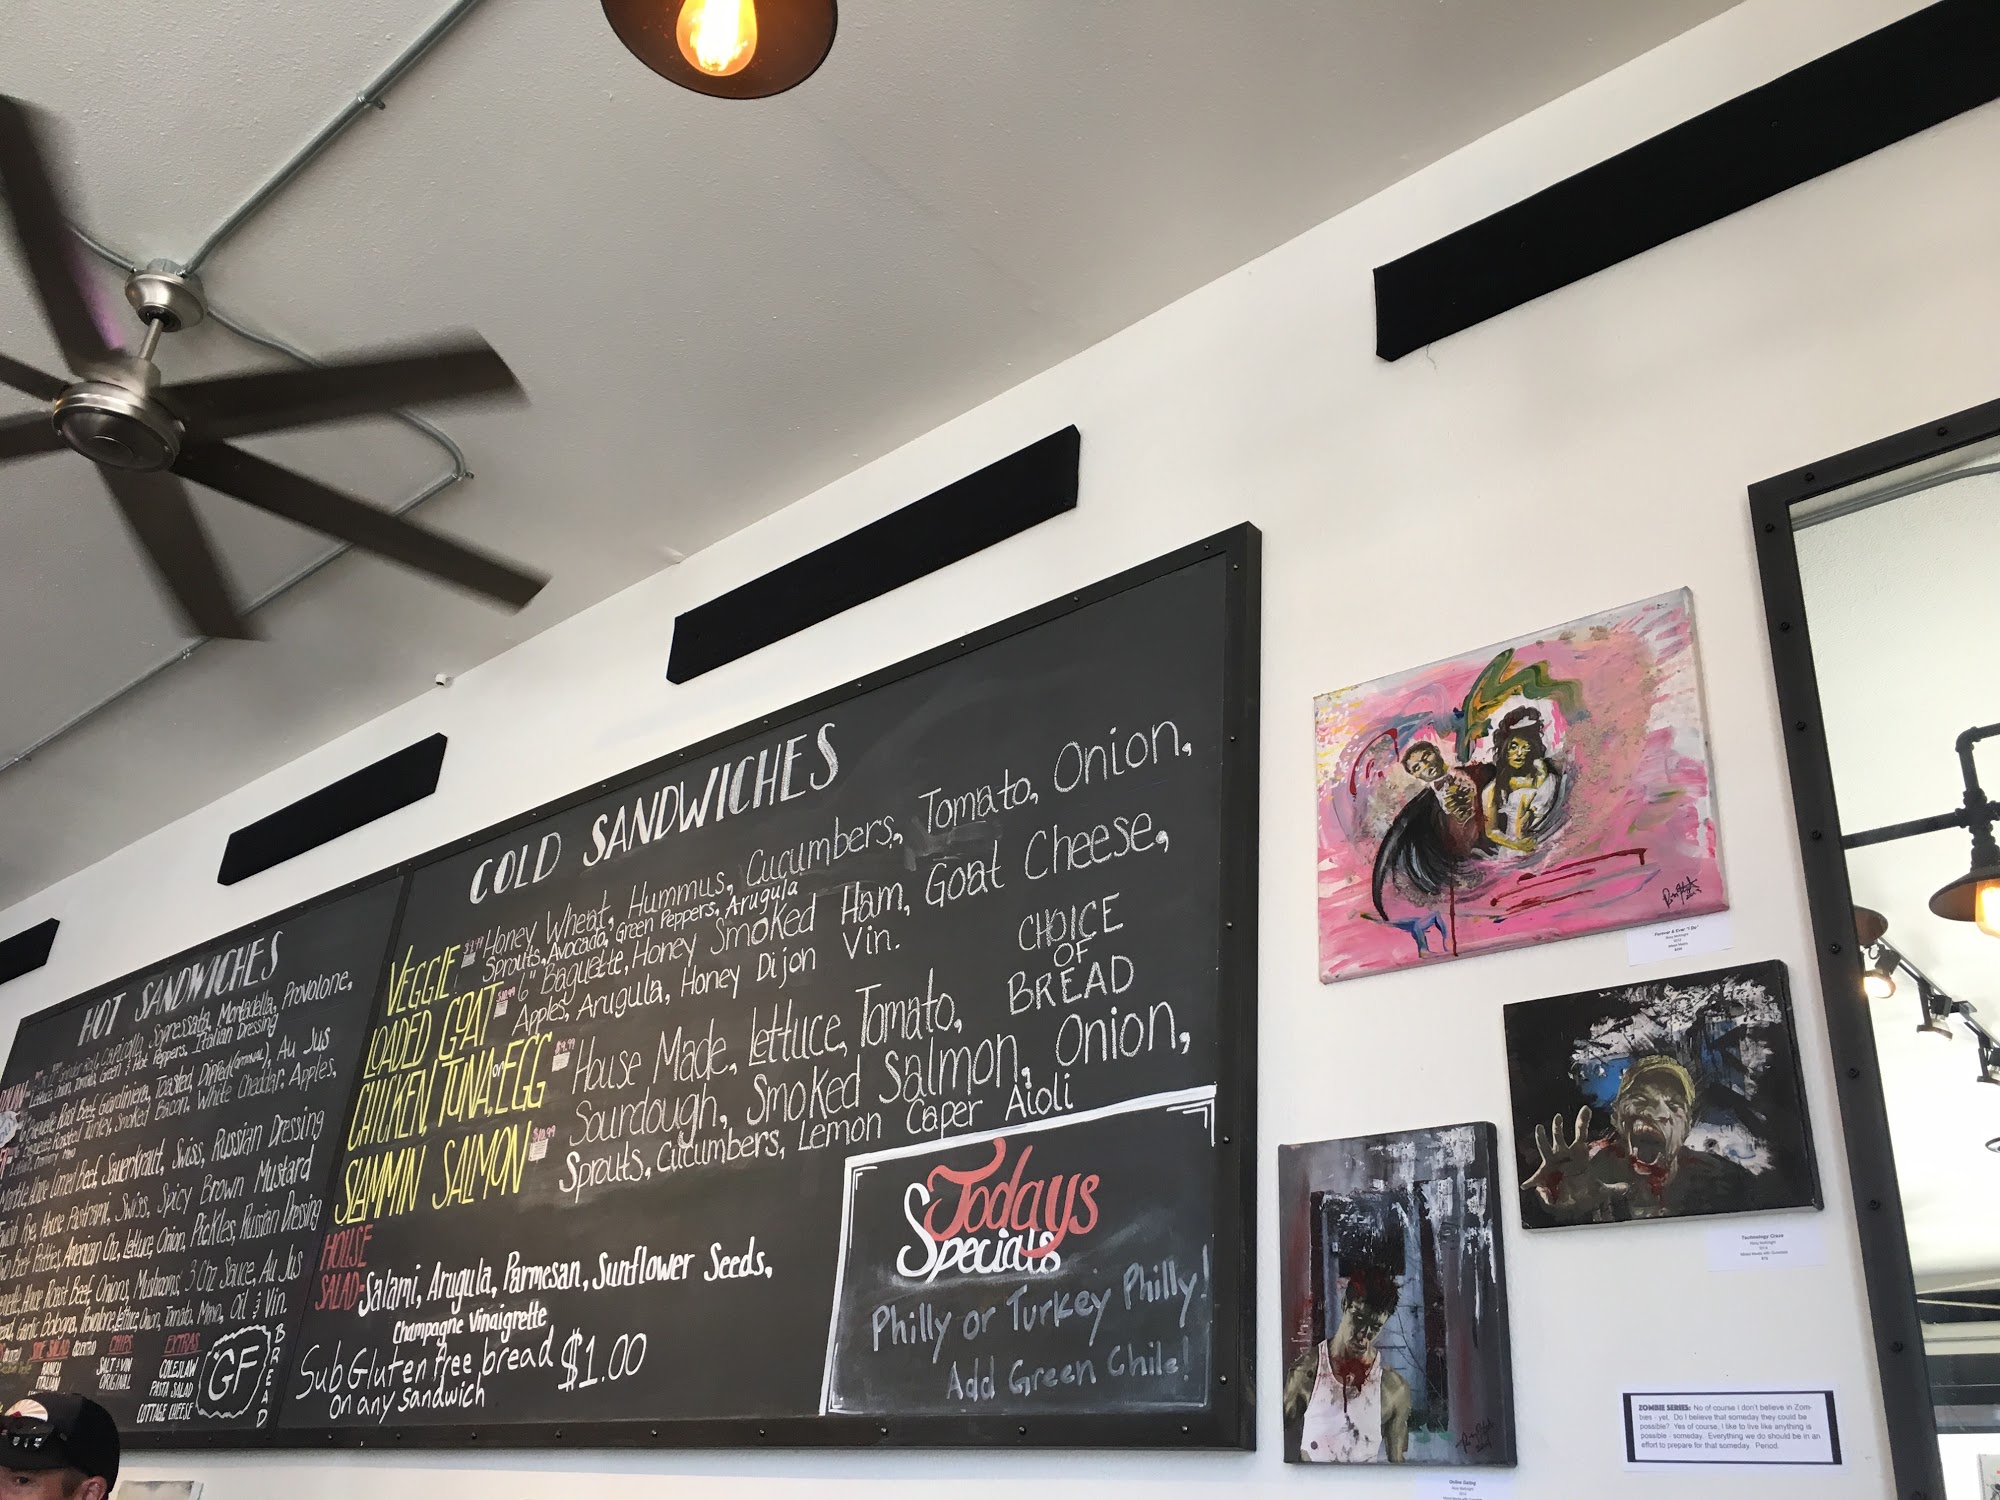 HOT SANDWICHES
Capicolla, Sopressata, Mortadella, Provolone,
Lettuce, Onion, Tomato, Green & Hot Peppers, Italian Dressing
Baguette, Roast Beef, Giardiniera, Toasted, Dipped (optional), Au Jus
Roasted Turkey, Smoked Bacon, White Cheddar, Apples,
Mayo
Marble, House Corned Beef, Sauerkraut, Swiss, Russian Dressing
Rye, House Pastrami, Swiss, Spicy Brown Mustard
Two Beef Patties, American Chz, Lettuce, Onion, Pickles, Russian Dressing
House Roast Beef, Onions, Mushrooms, 3 Chz Sauce, Au Jus
Garlic Bologna, Provolone, Lettuce, Onion, Tomato, Mayo, Oil & Vin.
SIDE SALAD
RANCH
ITALIAN
CHIPS
SALT & VIN
ORIGINAL
EXTRAS
COLESLAW
PASTA SALAD
COTTAGE CHEESE
GF
BREAD
COLD SANDWICHES
VEGGIE Honey Wheat, Hummus, Cucumbers, Tomato, Onion,
Sprouts, Avocado, Green Peppers, Arugula
LOADED GOAT 6" Baguette, Honey Smoked Ham, Goat Cheese,
Apples, Arugula, Honey Dijon Vin.
CHICKEN, TUNA, or EGG $9.99 House Made, Lettuce, Tomato,
CHOICE
OF
BREAD
SLAMMIN SALMON Sourdough, Smoked Salmon, Onion,
Sprouts, Cucumbers, Lemon Caper Aioli
HOUSE
SALAD- Salami, Arugula, Parmesan, Sunflower Seeds,
Champagne Vinaigrette
Sub Gluten free bread $1.00
on any sandwich
Todays
Specials
Philly or Turkey Philly!
Add Green Chile!
Forever & Ever "I Do"
Technology Craze
Online Dating
ZOMBIE SERIES: No of course I don't believe in Zom-
bies - yet. Do I believe that someday they could be
possible? Yes of course, I like to live like anything is
possible - someday. Everything we do should be in an
effort to prepare for that someday. Period.